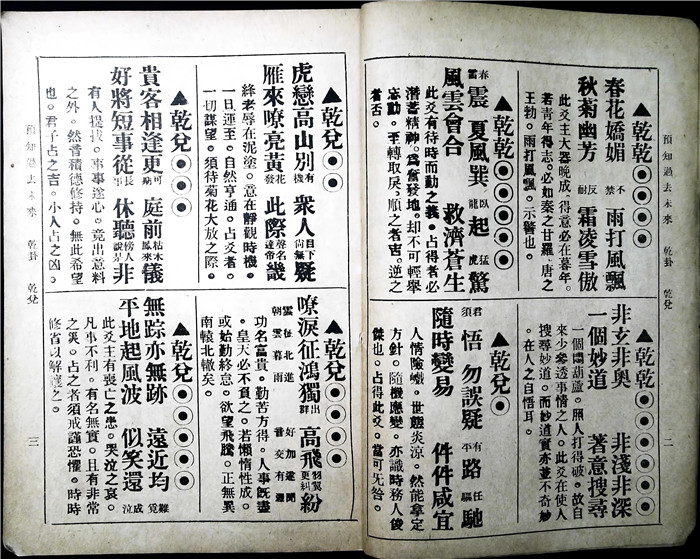 預知過去未來 乾卦 乾兌 二
▲乾乾◉◉◉◉◉
春花嬌媚 不禁 雨打風飄
秋菊幽芳 反耐 霜凌雪傲
此爻主大器晚成。得意必在暮年。
若青年得志。必如秦之甘羅。唐之
王勃。雨打風飄。示警也。
▲乾乾◉◉◉◉◉
春雷震 夏風巽 臥龍起 猛虎驚
風雲會合 救濟蒼生
此爻有待時而動之義。占得者必
潛蓄精神。為奮發地。却不可輕舉
妄動。至轉取戾。順之者吉。逆之
者否。
▲乾乾◉◉◉◉◉
非玄非奧 非淺非深
一個妙道 著意搜尋
一個悶葫蘆。照人打得破。故自
來少參透事情之人。此爻在使人
搜尋妙道。而妙道實亦並不奇妙
。在人之自悟耳。
▲乾兌◉
君須悟 勿誤疑 有平路 任驅馳
隨時變易 件件咸宜
人情險巇。世態炎涼。然能拿定
方針。隨機應變。亦識時務人俊
傑也。占得此爻。當可无咎。
▲乾兌◉◉
虎戀高山別有機 衆人目下尚無疑
雁來嘹亮黃花發 此際聲名達帝畿
絳老辱在泥塗。意在靜觀時機。
一旦運至。自然亨通。占爻者。
一切謀望。須待菊花大放之際。
▲乾兌◉◉◉
貴客相逢更可期 庭前枯木鳳來儀
好將短事從長事 休聽傍人說是非
有人提拔。事事遂心。竟出意料
之外。然普積德修持。無此希望
也。君子占之吉。小人占之凶。
▲乾兌◉◉◉◉
嘹淚征鴻獨出群 高飛
功名富貴。勤苦方得。人事既盡
。皇天必不負之。若懶惰性成。
或始勤終怠。欲望飛騰。正無異
南轅北轍矣。
▲乾兌◉◉◉◉◉
無踪亦無跡 遠近均難覓
平地起風波 似笑還成泣
此爻主有喪亡之患。哭泣之哀。
凡事不利。有名無實。且有非常
之災。占之者須戒謹恐懼。時時
修省以解禳之。
預知過去未來 乾卦 乾兌 三